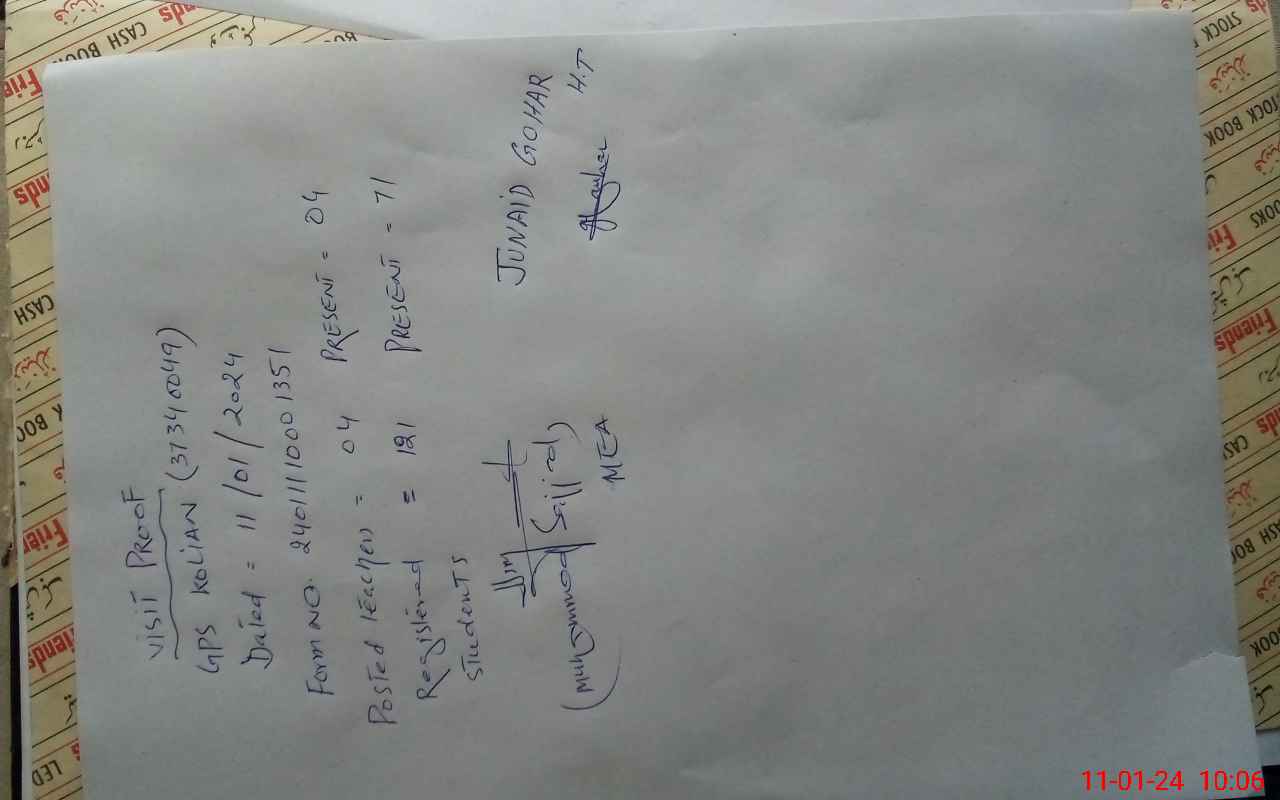 VISIT PROOF
GPS KOLIAN (37340049)
Dated = 11/01/2024
Form NO. 24011110001351
Posted teachers = 04 PRESENT = 04
Registered = 121 PRESENT = 71
students
(Muhammad Sajjad)
MEA
JUNAID GOHAR
H.T
CASH BOOK
STOCK BOOK
Friends
11-01-24 10:06